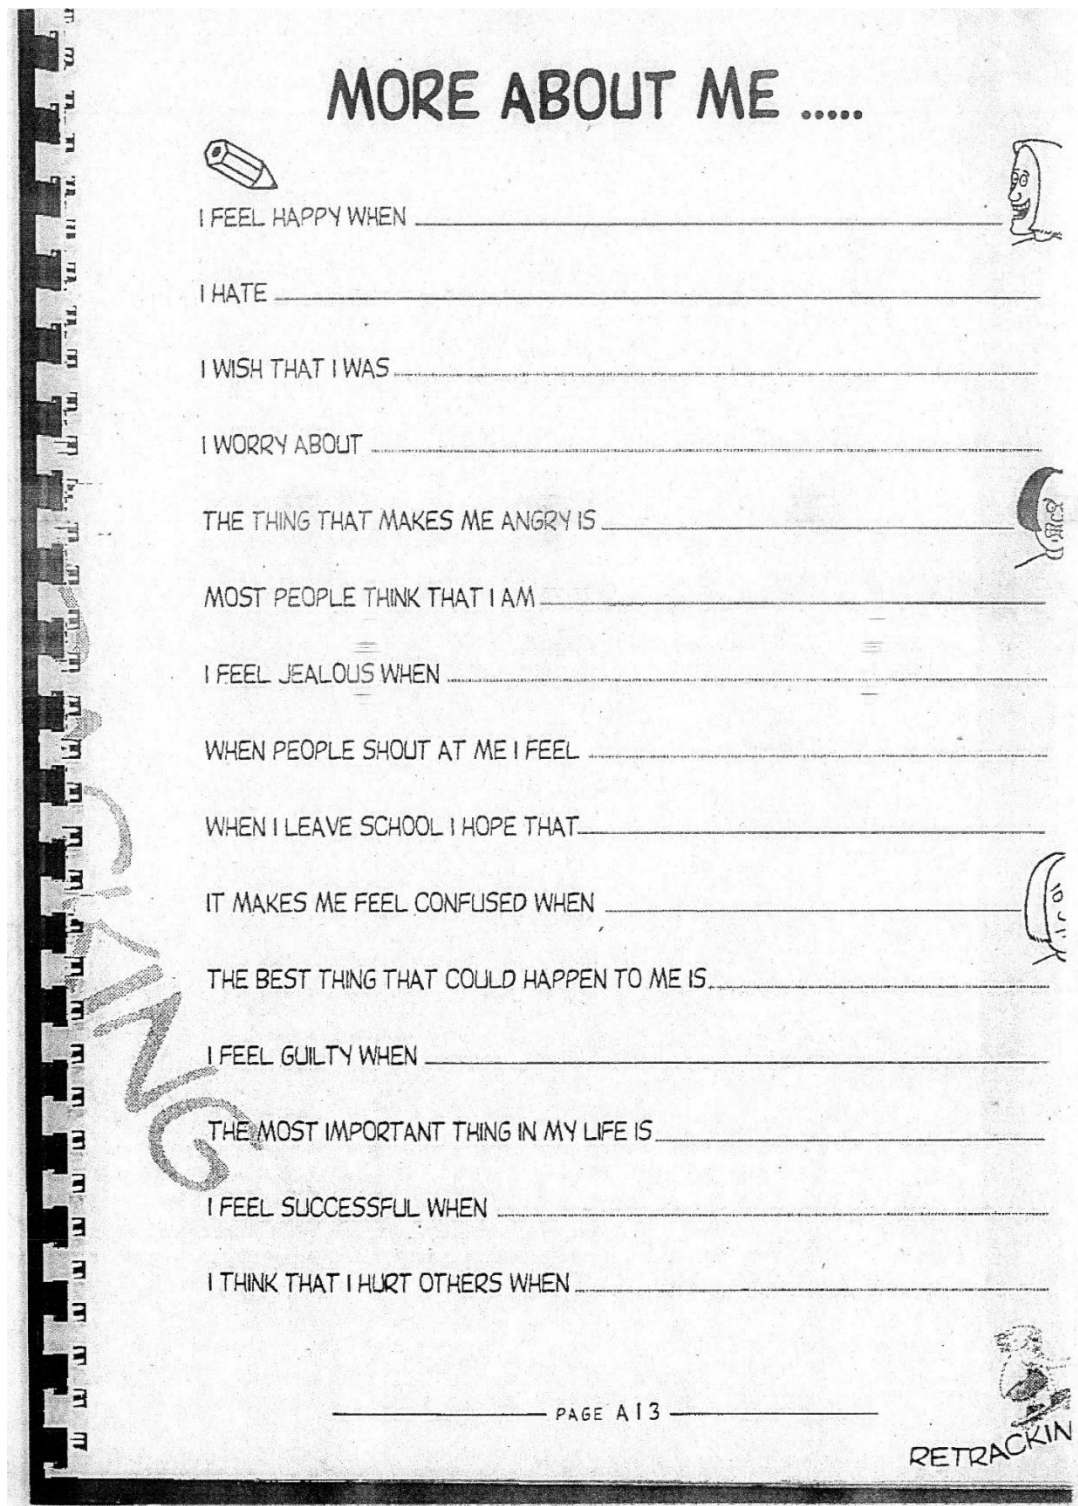 MORE ABOUT ME .....
I FEEL HAPPY WHEN
I HATE
I WISH THAT I WAS
I WORRY ABOUT
THE THING THAT MAKES ME ANGRY IS
MOST PEOPLE THINK THAT I AM
I FEEL JEALOUS WHEN
WHEN PEOPLE SHOUT AT ME I FEEL
WHEN I LEAVE SCHOOL I HOPE THAT
IT MAKES ME FEEL CONFUSED WHEN
THE BEST THING THAT COULD HAPPEN TO ME IS
I FEEL GUILTY WHEN
THE MOST IMPORTANT THING IN MY LIFE IS
I FEEL SUCCESSFUL WHEN
I THINK THAT I HURT OTHERS WHEN
PAGE A13
RETRACKIN